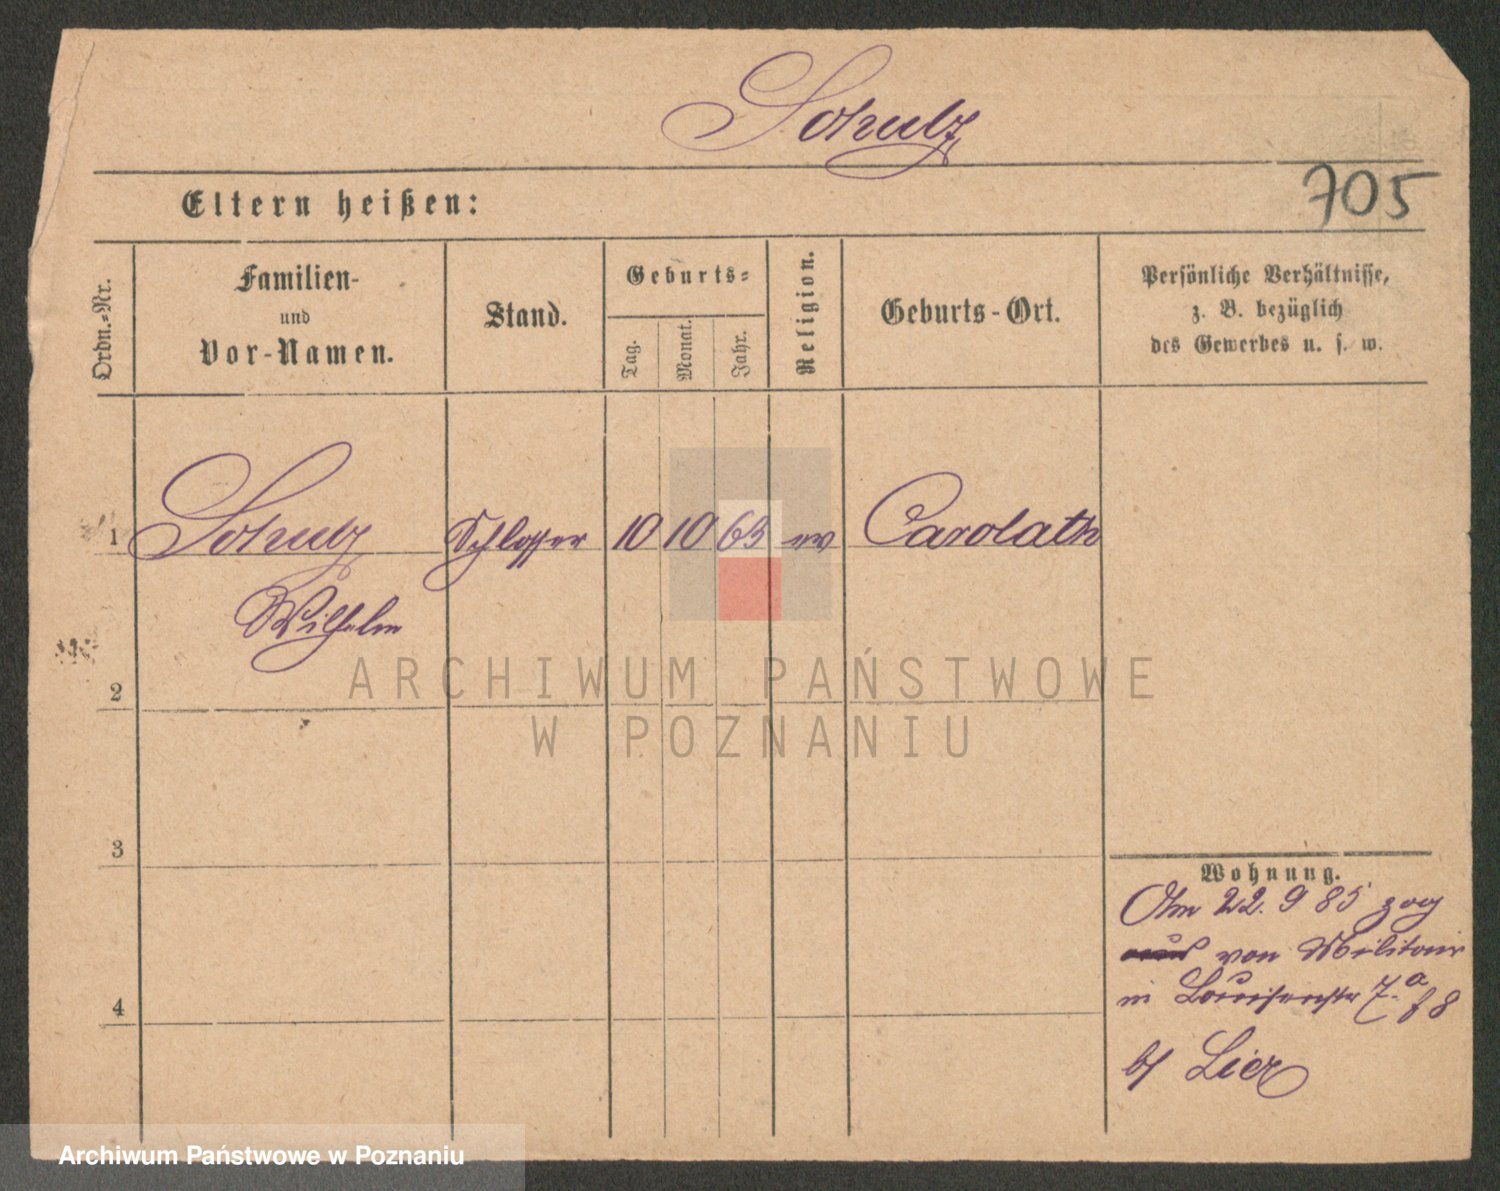 Schulz
Eltern heißen:
705
Ordn.-Nr.
Familien-
und
Vor-Namen.
Stand.
Geburts-
Tag.
Monat.
Jahr.
Religion.
Geburts-Ort.
Persönliche Verhältnisse,
z. B. bezüglich
des Gewerbes u. s. w.
1 Schulz Schlosser 10 10 63 ev Carolath
Wilhelm
2
3
4
Wohnung.
Am 22. 9 85 zog
von Militair
in Louisenstr 7.a
b/ Lier
ARCHIWUM PAŃSTWOWE
W POZNANIU
Archiwum Państwowe w Poznaniu